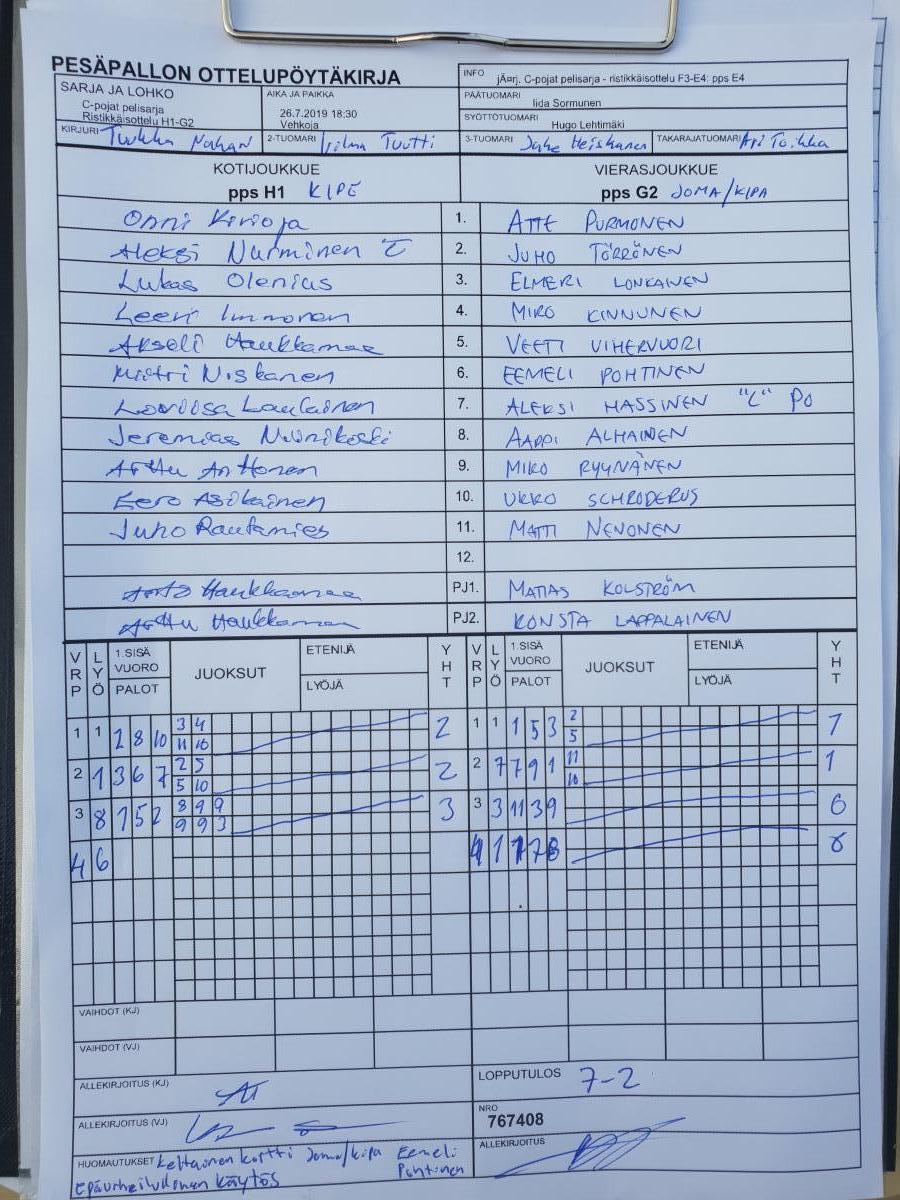 PESÄPALLON OTTELUPÖYTÄKIRJA
INFO jÃ¤rj. C-pojat pelisarja - ristikkäisottelu F3-E4: pps E4
SARJA JA LOHKO
C-pojat pelisarja
Ristikkäisottelu H1-G2
AIKA JA PAIKKA
26.7.2019 18:30
Vehkoja
PÄÄTUOMARI
Iida Sormunen
SYÖTTÖTUOMARI
Hugo Lehtimäki
KIRJURI
2-TUOMARI Tuutti
3-TUOMARI Heiskanen
TAKARAJATUOMARI Toikka
KOTIJOUKKUE
pps H1 KIPE
VIERASJOUKKUE
pps G2 JOMA/KIPA
Onni Kirioja 1. ATTE PURMONEN
Aleksi Nurminen 2. JUHO TÖRRÖNEN
Lukas Olenius 3. ELMERI LONKAINEN
Leevi Immonen 4. MIRO KINNUNEN
Akseli Haukkamaa 5. VEETI VIHERVUORI
Miitri Niskanen 6. EEMELI POHTINEN
Laulainen 7. ALEKSI HASSINEN "C" PO
Jeremias Niinikoski 8. AAPPI ALHAINEN
Arttu Anttonen 9. MIKO RYYNÄNEN
Eero Asikainen 10. UKKO SCHRODERUS
Juho Rautamies 11. MATTI NENONEN
12.
Haukkamaa PJ1. MATIAS KOLSTRÖM
Arttu Haukkamaa PJ2. KONSTA LAPPALAINEN
VRP LYÖ 1.SISÄ VUORO PALOT JUOKSUT ETENIJÄ LYÖJÄ YHT VRP LYÖ 1.SISÄ VUORO PALOT JUOKSUT ETENIJÄ LYÖJÄ YHT
1 1 2 8 10 3 4 2 1 1 1 5 3 2
11 10 5
2 1 3 6 7 2 5 2 2 7 7 9 1 11 1
5 10 10
3 8 1 5 2 8 9 9 3 3 3 11 3 9
9 9 3
4 6
VAIHDOT (KJ)
VAIHDOT (VJ)
ALLEKIRJOITUS (KJ)
LOPPUTULOS 7-2
ALLEKIRJOITUS (VJ)
NRO
767408
ALLEKIRJOITUS
HUOMAUTUKSET Keltainen kortti Joma/kipa Eemeli Pohtinen
Epäurheilullinen käytös